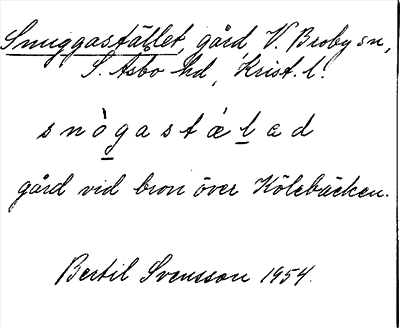 Snuggastället, gård, V. Broby sn,
S. Åsbo hd, Krist. l.
snògastáleḏ
gård vid bron över Kölebäcken.
Bertil Svensson 1954.